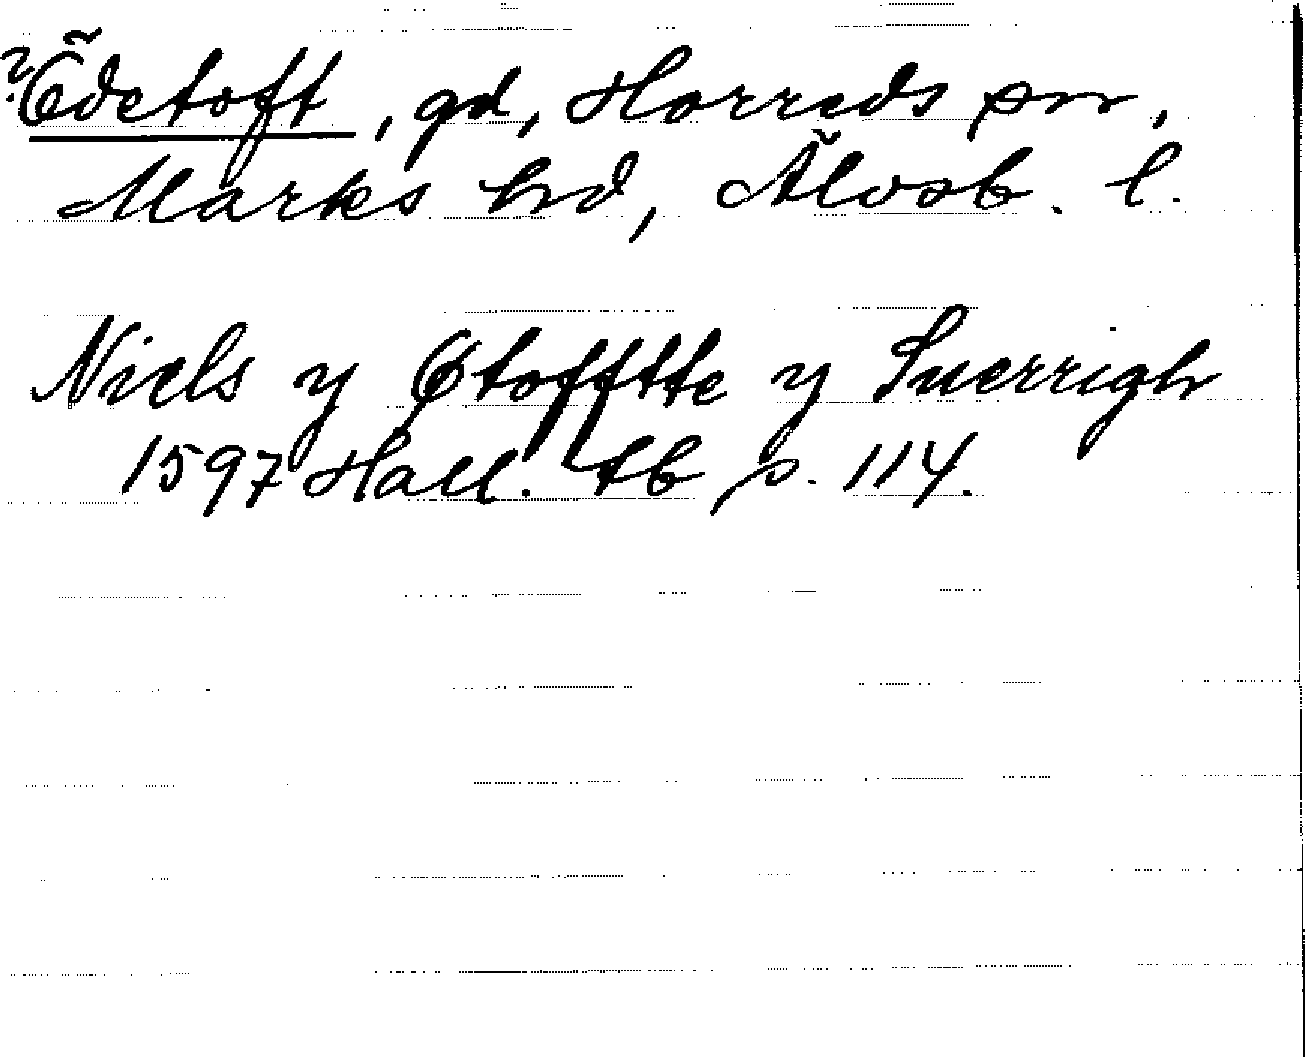 ? Ödetoft, gd, Horreds sn,
Marks hd, Älvsb. l.
Niels y Øtofftte y Suerrigh
1597 Hall. tb p. 114.